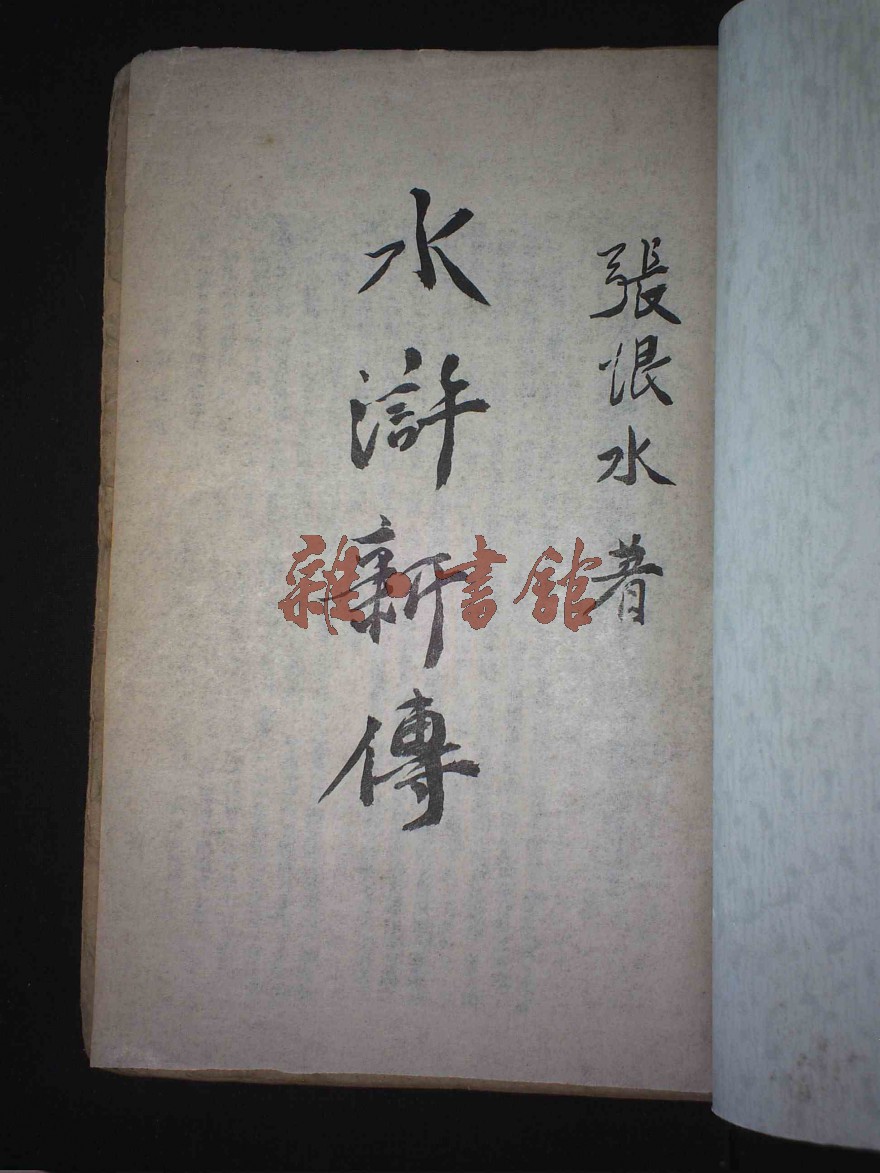 張恨水著
水滸新傳
雜·書館